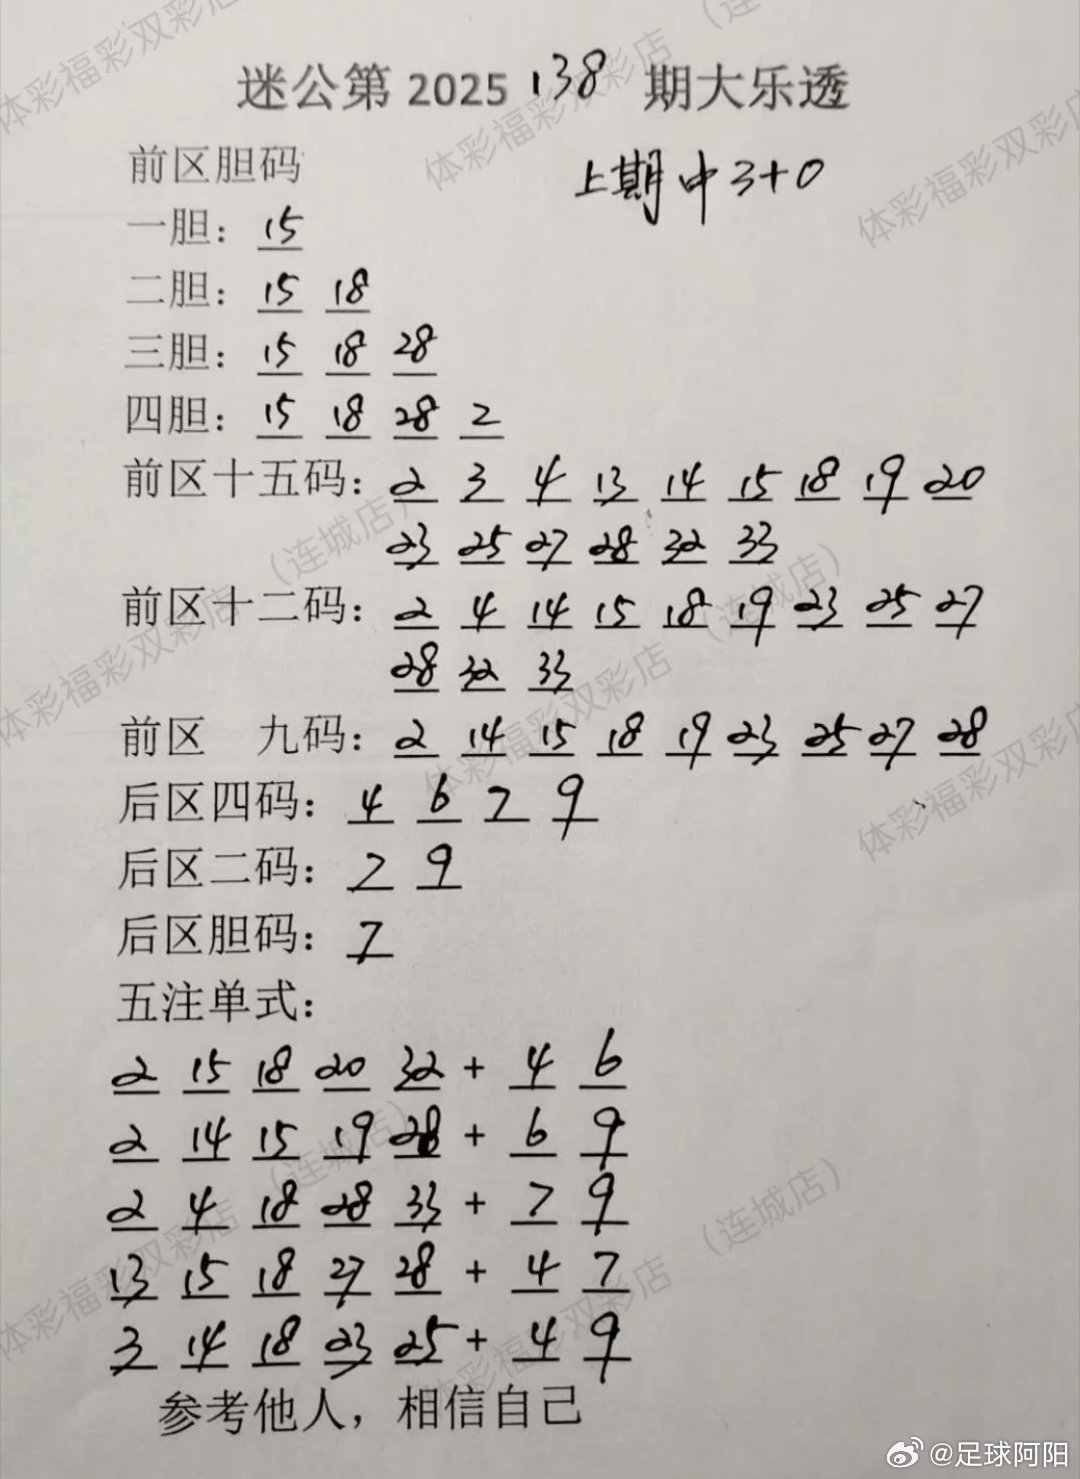 迷公第 2025 138 期大乐透
上期中3+0
前区胆码
一胆：15
二胆：15 18
三胆：15 18 28
四胆：15 18 28 2
前区十五码：2 3 4 13 14 15 18 19 20
23 25 27 28 32 33
前区十二码：2 4 14 15 18 19 23 25 27
28 32 33
前区 九码：2 14 15 18 19 23 25 27 28
后区四码：4 6 7 9
后区二码：7 9
后区胆码：7
五注单式：
2 15 18 20 32 + 4 6
2 14 15 19 28 + 6 9
2 4 18 28 33 + 7 9
13 15 18 27 28 + 4 7
3 14 18 23 25 + 4 9
参考他人，相信自己
体彩福彩双彩店（连城店）
@足球阿阳